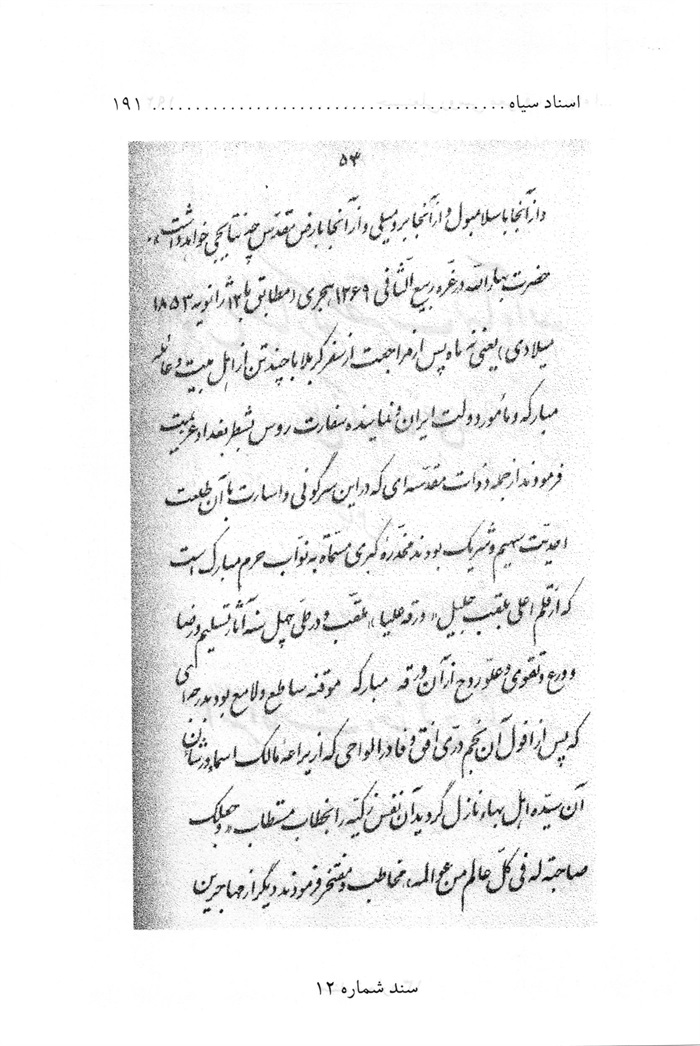 اسناد سیاه ........................................ ۱۹۱
۵۳
و از آنجا باسلامبول و از آنجا برومیلی و از آنجا بارض مقدّس چه نتایجی خواهد داشت..
حضرت بهاءالله در غرّه ربیع الثّانی ۱۲۶۹ هجری (مطابق با ۱۲ ژانویه ۱۸۵۳
میلادی) یعنی نه ماه پس از مراجعت از سفر کربلا با چند تن از اهل بیت و عائله
مبارکه و مأمور دولت ایران و نماینده سفارت روس بشطر بغداد عزیمت
فرمودند از جمله ذوات مقدّسه ای که در این سرگونی و اسارت با آن طلعت
احدیّت سهیم و شریک بودند مخدّره کبری مسمّاة به نوّاب حرم مبارک است
که از قلم اعلی بلقب جلیل «ورقه علیا» ملقّب و در طیّ چهل سنه آثار تسلیم و رضا
و ورع و تقوی و علوّ روح از آن ورقه مبارکه موقنه ساطع و لامع بود بدرجه‌ای
که پس از افول آن نجم درّی افق وفا در الواحی که از یراعه مالک اسماء در شأن
آن سیّده اهل بهاء نازل گردید آن نفس زکیّه را بخطاب مستطاب «و جعلک
صاحبة له فی کلّ عالم من عوالمه» مخاطب و مفتخر فرمودند دیگر از مهاجرین
سند شماره ۱۲